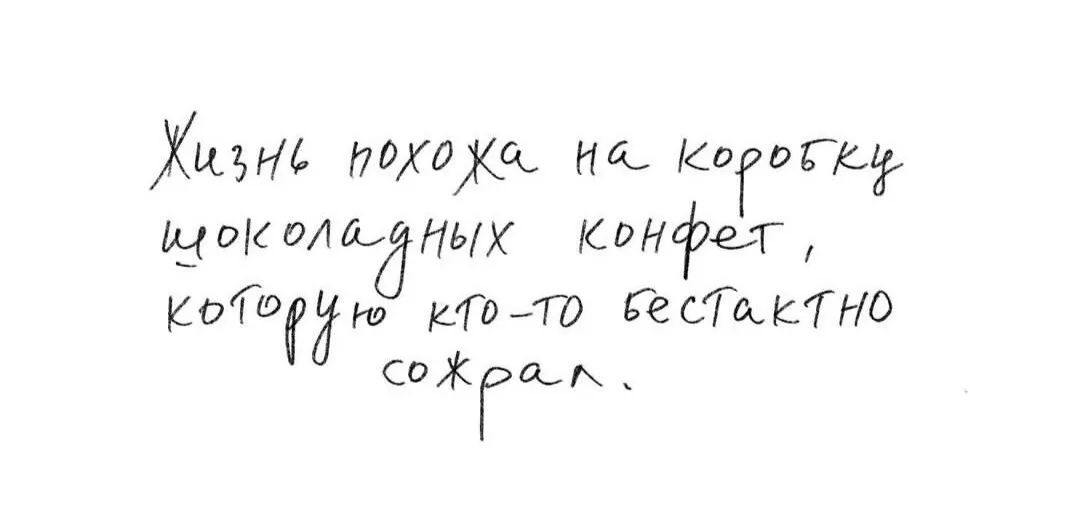 Жизнь похожа на коробку
шоколадных конфет,
которую кто-то бестактно
сожрал.